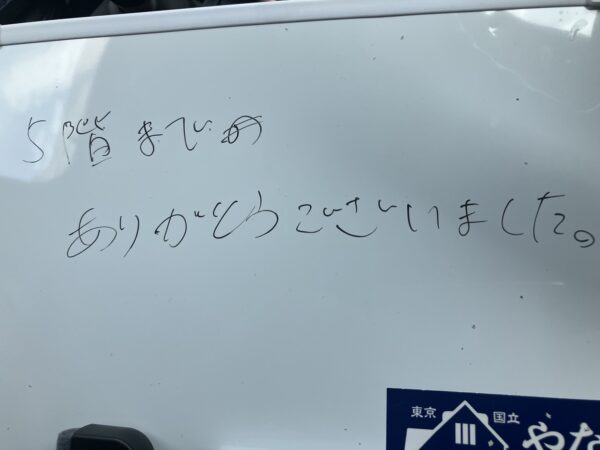 5階まで
ありがとうございました。
東京 国立
やな